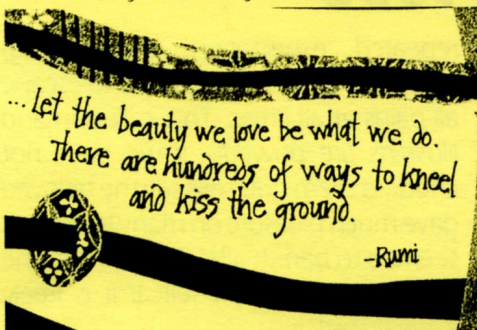 ...Let the beauty we love be what we do.
There are hundreds of ways to kneel
and kiss the ground.
-Rumi